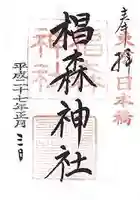 奉拝
東京日本橋
椙森神社
平成二十七年正月三日